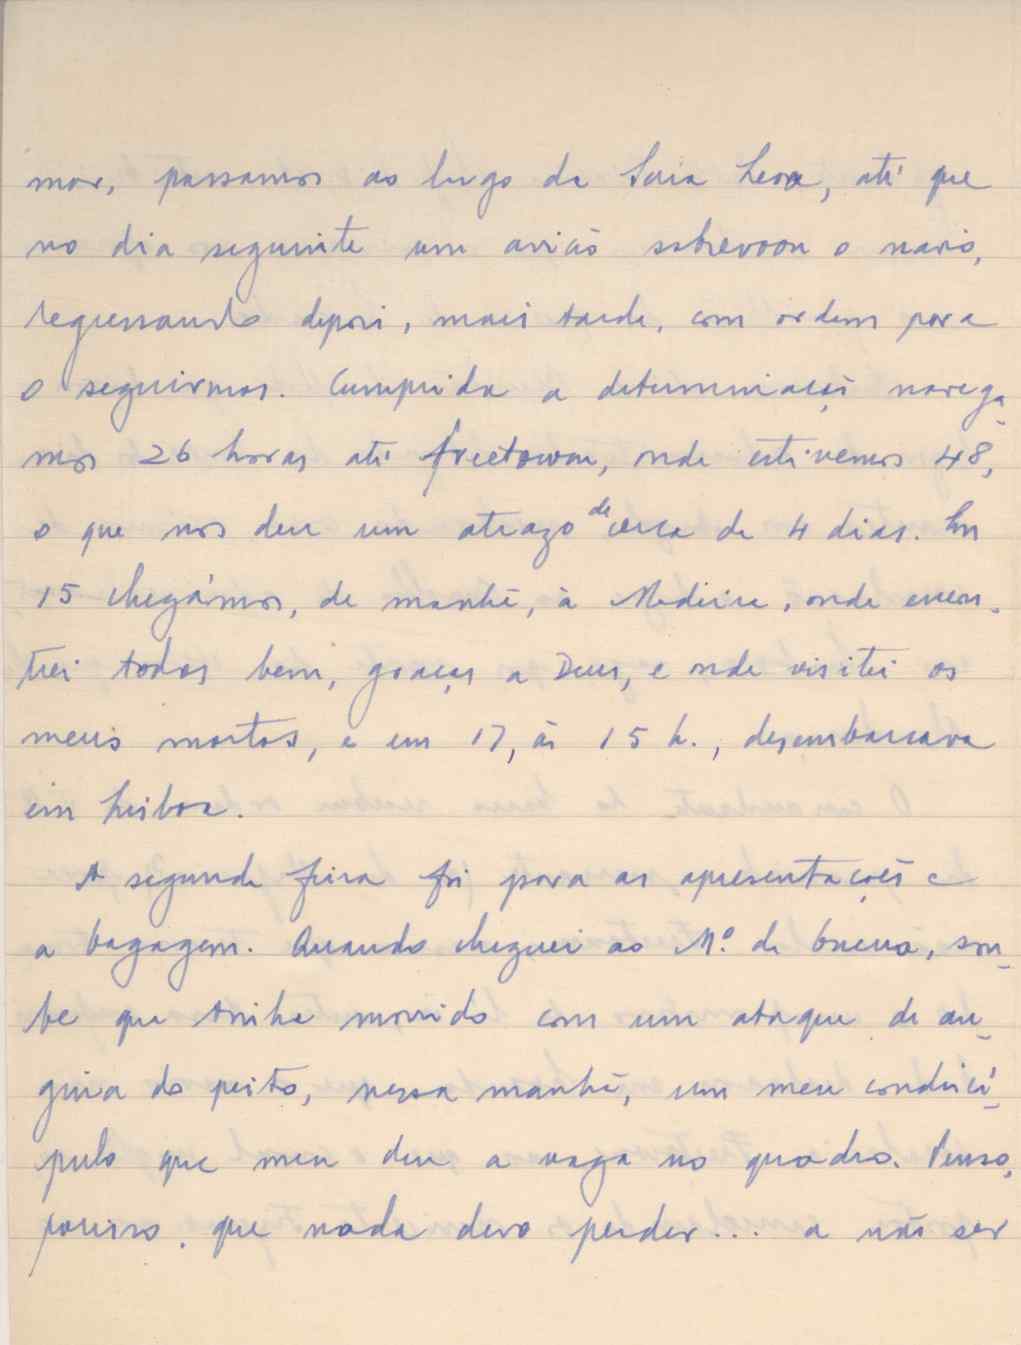 mar, passamos ao largo da Serra Leoa, até que
no dia seguinte um avião sobrevoou o navio,
regressando depois, mais tarde, com ordem para
o seguirmos. Cumprida a determinação navegá-
mos 26 horas até Freetown, onde estivemos 48,
o que nos deu um atrazo de cerca de 4 dias. Em
15 chegámos, de manhã, à Madeira, onde encon-
trei todos bem, graças a Deus, e onde visitei os
meus mortos, e em 17, às 15 h., desembarcava
em Lisboa.
A segunda feira foi para as apresentações e
a bagagem. Quando cheguei ao Mº. da Guerra, sou-
be que tinha morrido com um ataque de an-
gina do peito, nessa manhã, um meu condiscí-
pulo que meu deu a vaga no quadro. Penso,
porisso, que nada devo perder... a não ser